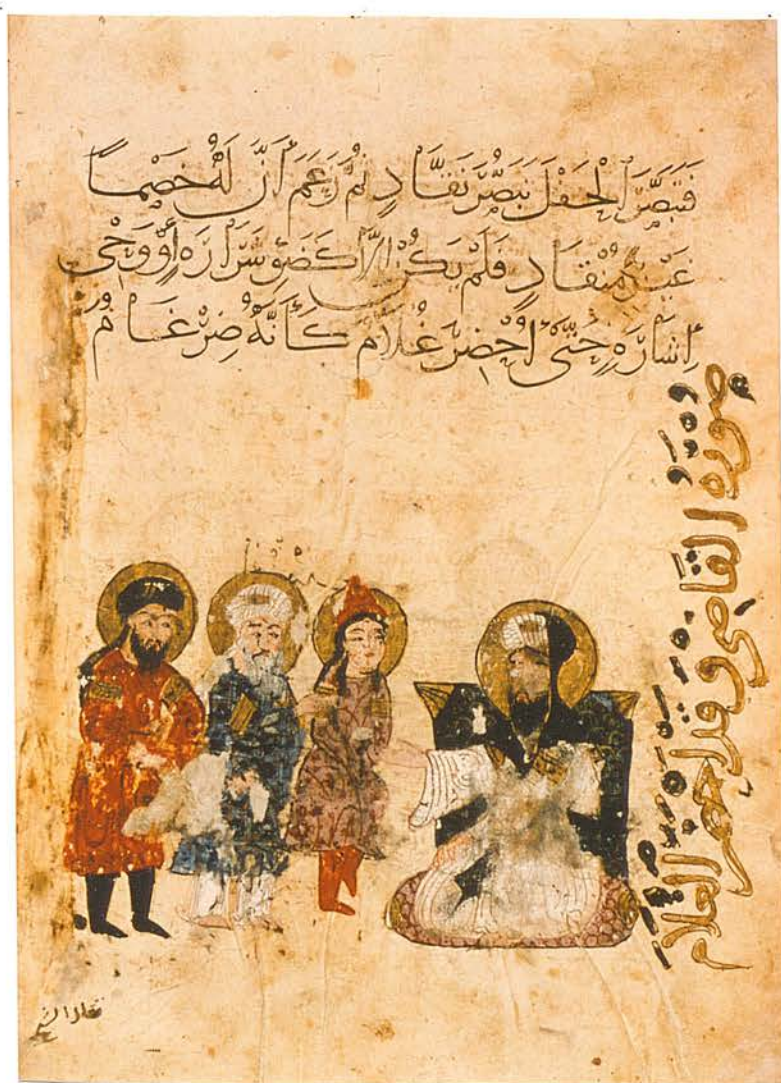 فَتَبَصَّرَ الْحَفْلَ تَبَصُّرَ نَقَّادٍ ثُمَّ زَعَمَ أَنَّ لَهُ خَصْمًا
غَيْرَ مُنْقَادٍ فَلَمْ يَكُنْ إِلَّا كَضَوْءِ شَرَارَةٍ أَوْ وَحْيِ
إِشَارَةٍ حَتَّى أُحْضِرَ غُلَامٌ كَأَنَّهُ ضِرْغَامٌ
صورة القاضي وقد احضر الغلام